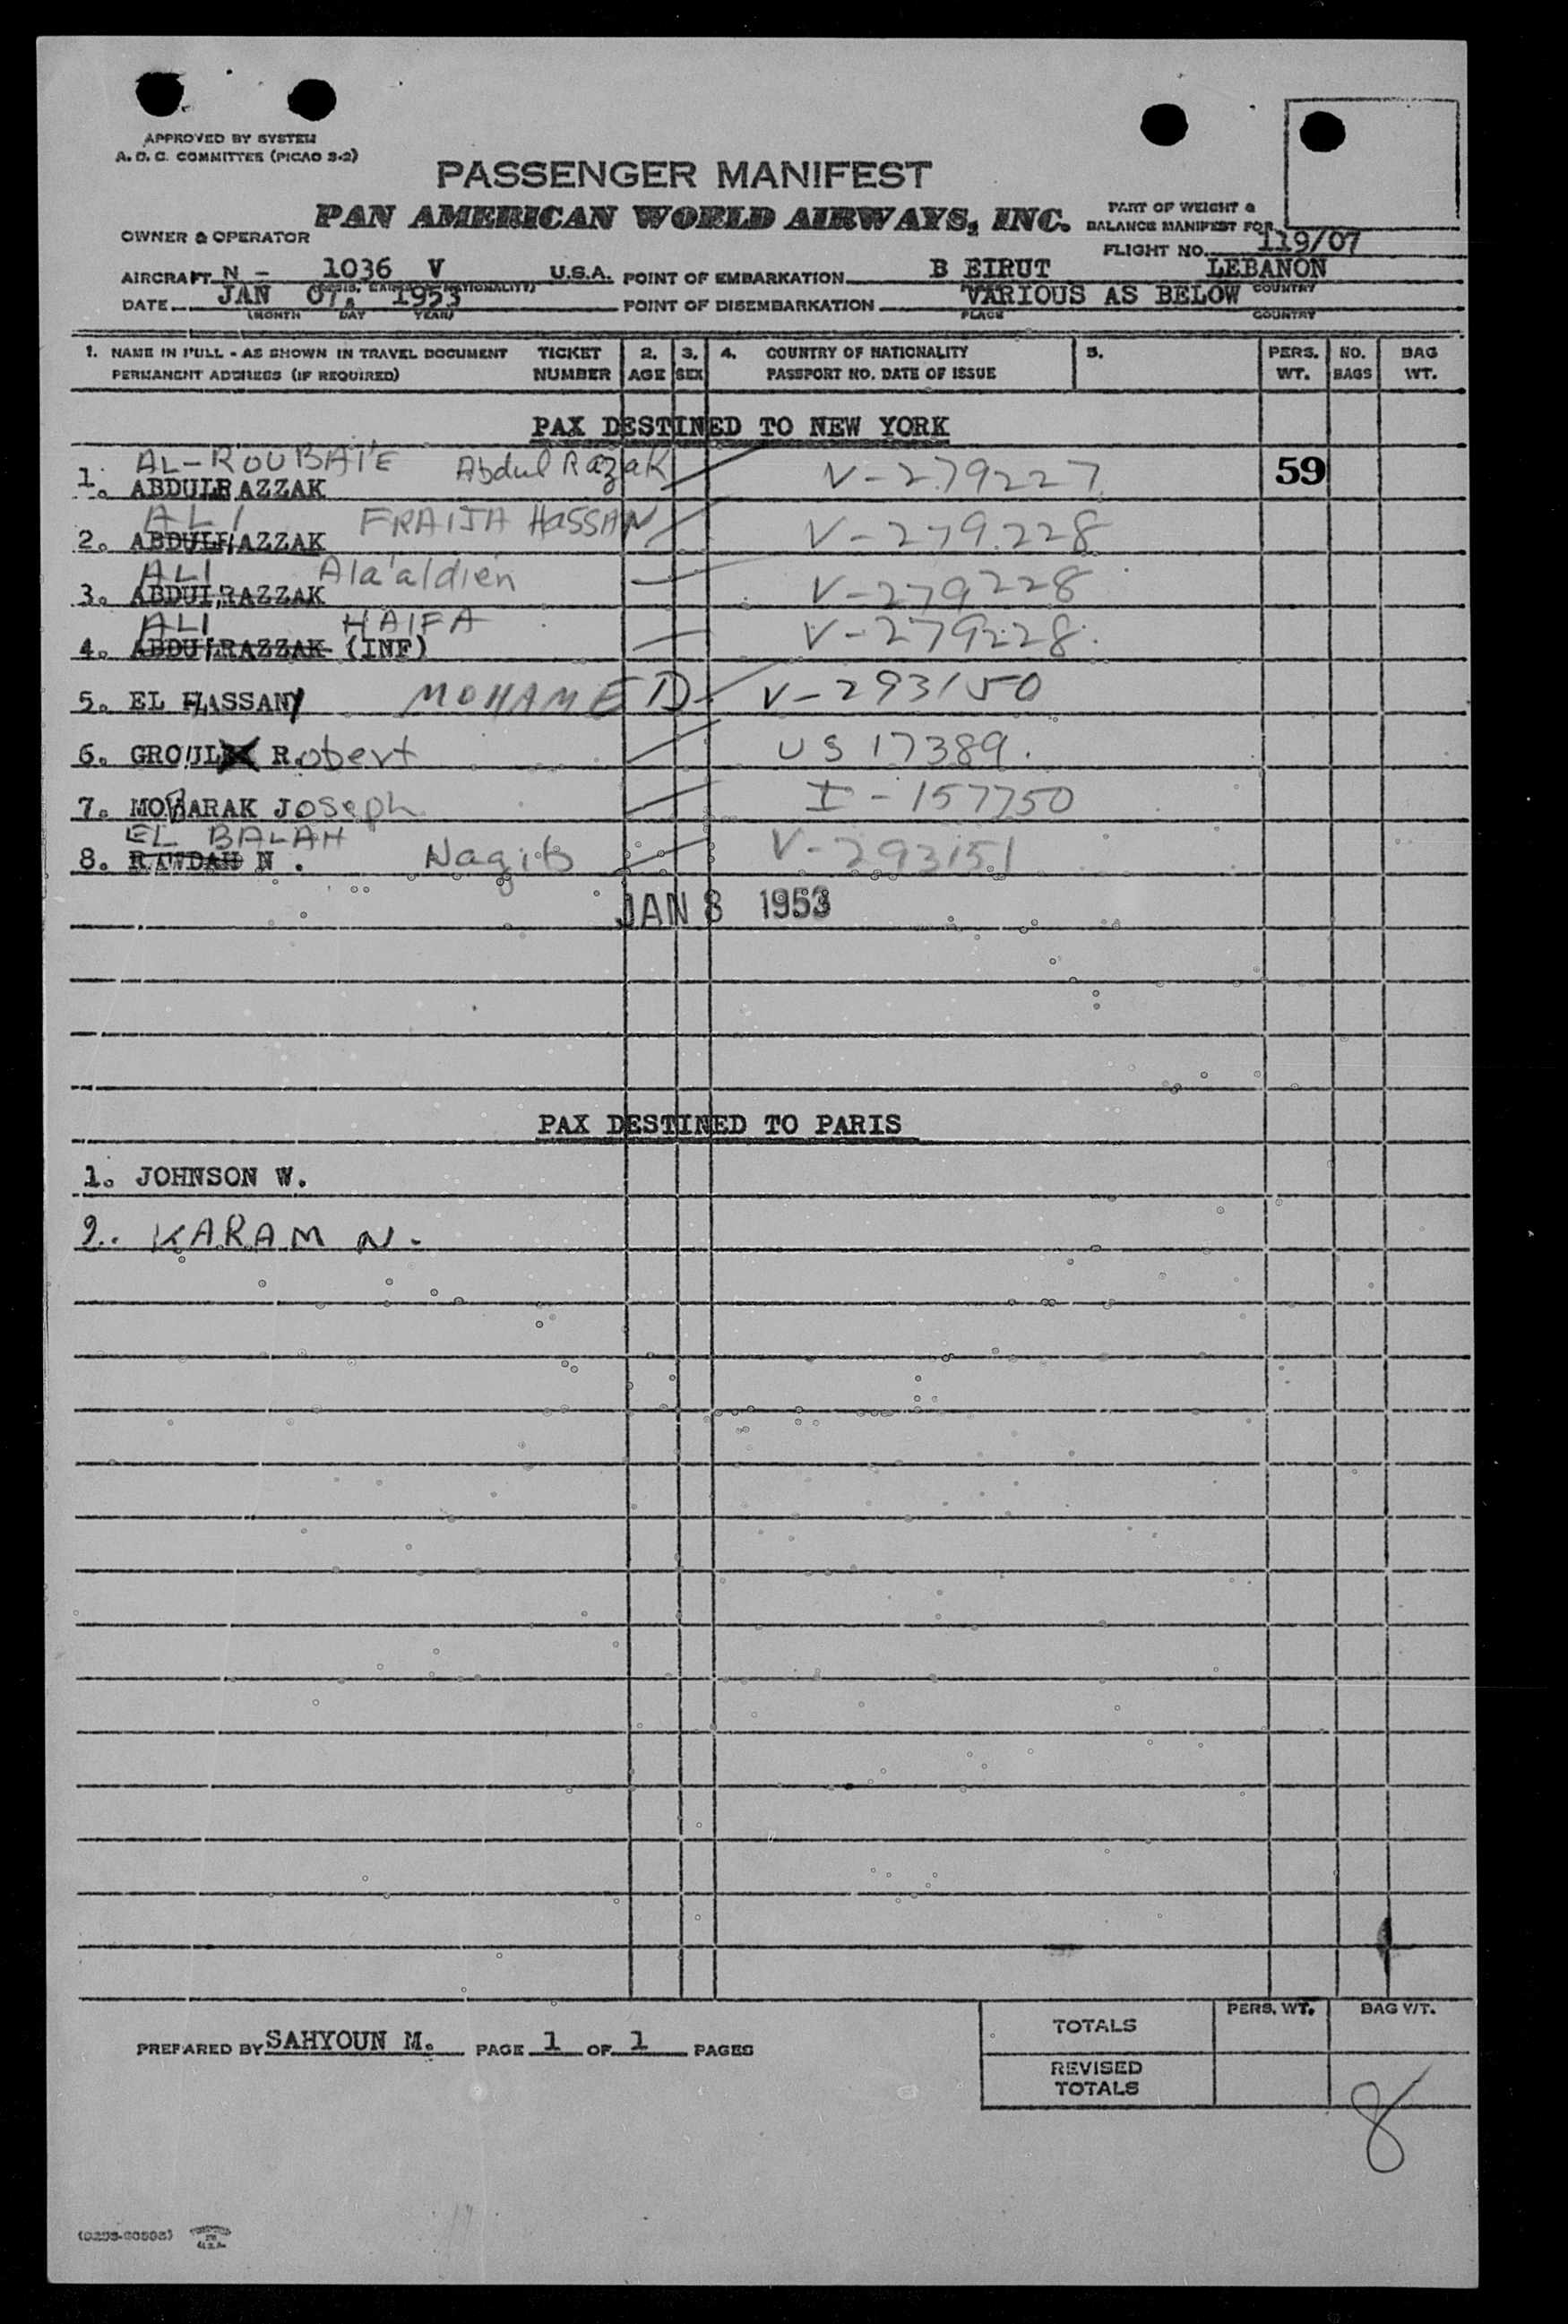 APPROVED BY SYSTEM
A.O.C. COMMITTEE (PICAO 3-2)
PASSENGER MANIFEST
PAN AMERICAN WORLD AIRWAYS, INC.
OWNER & OPERATOR
PART OF WEIGHT &
BALANCE MANIFEST FOR
FLIGHT NO. 119/07
AIRCRAFT N - 1036 V U.S.A. POINT OF EMBARKATION B EIRUT LEBANON
DATE JAN 07, 1953 POINT OF DISEMBARKATION VARIOUS AS BELOW COUNTRY
(MONTH DAY YEAR) PLACE COUNTRY
1. NAME IN FULL - AS SHOWN IN TRAVEL DOCUMENT TICKET 2. 3. 4. COUNTRY OF NATIONALITY 5. PERS. NO. BAG
PERMANENT ADDRESS (IF REQUIRED) NUMBER AGE SEX PASSPORT NO. DATE OF ISSUE WT. BAGS WT.
PAX DESTINED TO NEW YORK
AL-ROUBAI'E Abdul Razak V-279227 59
1. ABDULRAZZAK
ALI FRAIJA HASSAN V-279228
2. ABDULRAZZAK
ALI Ala'aldien V-279228
3. ABDULRAZZAK
ALI HAIFA V-279228
4. ABDULRAZZAK (INF)
5. EL HASSANY MOHAMED V-293150
6. GROUL Robert US 17389.
7. MOBARAK Joseph I-157750
EL BALAH
8. RAWDAH N. Nagib V-293151
JAN 8 1953
PAX DESTINED TO PARIS
1. JOHNSON W.
2. KARAM N.
PREPARED BY SAHYOUN M. PAGE 1 OF 1 PAGES
TOTALS PERS. WT. BAG WT.
REVISED
TOTALS
8